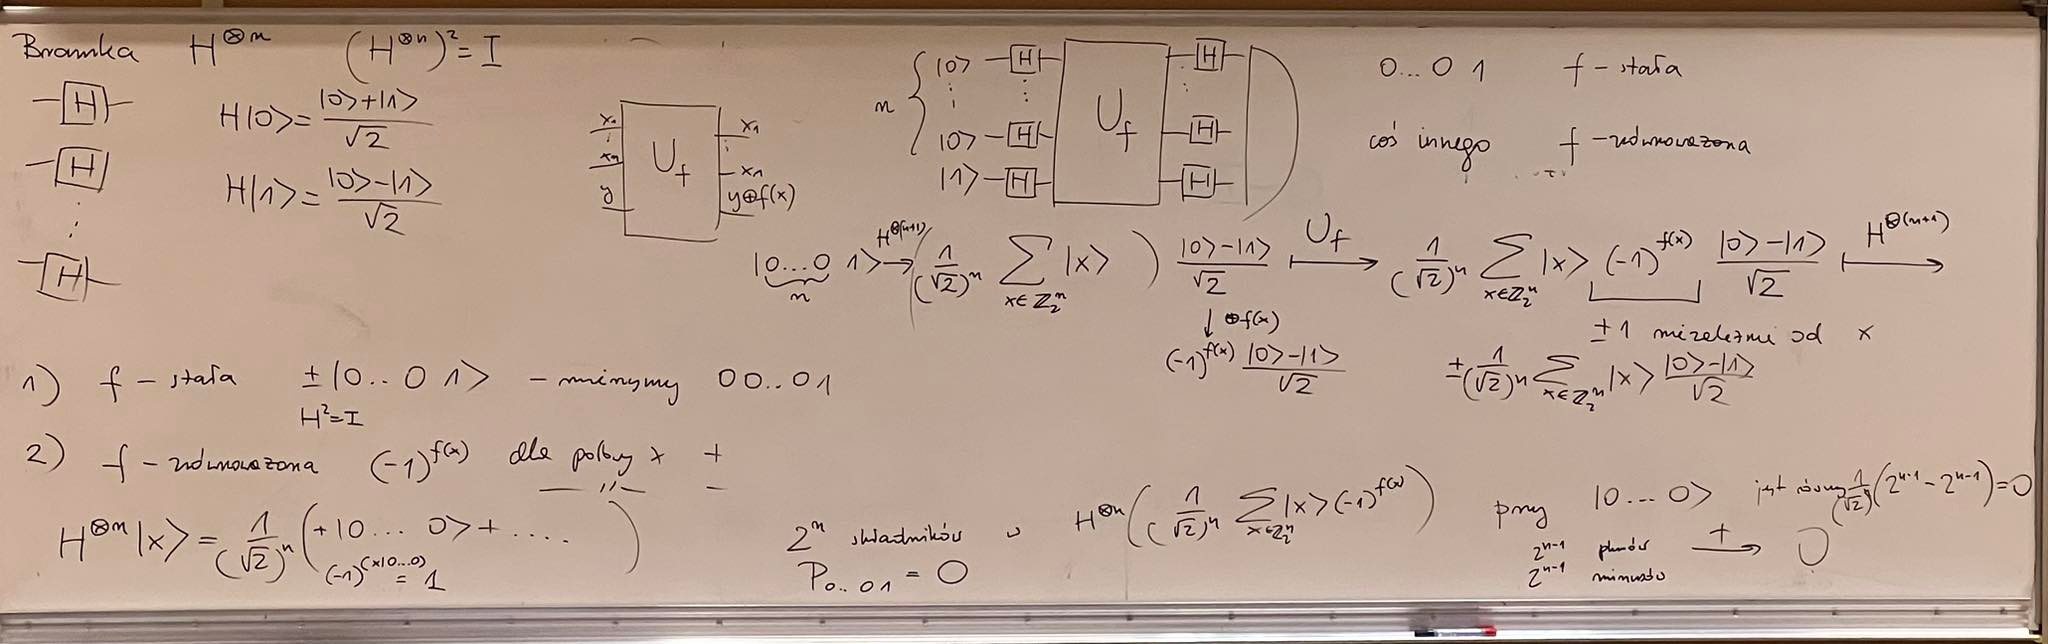 Bramka H^{⊗n} (H^{⊗n})² = I
H
H
⋮
H
H|0> = (|0>+|1>)/√2
H|1> = (|0>-|1>)/√2
x₁ x₁
⋮ U_f ⋮
xₙ x₁
y y⊕f(x)
n { |0> H H
⋮ ⋮ U_f ⋮
|0> H H
|1> H H
0...0 1 f - stała
coś innego f - zrównoważona
|0...0 1> (n) →^{H^{⊗(n+1)}} (1/(√2)^n ∑_{x∈ℤ₂^n} |x>) (|0>-|1>)/√2 ↦^{U_f} 1/(√2)^n ∑_{x∈ℤ₂^n} |x> (-1)^{f(x)} (|0>-|1>)/√2 ↦^{H^{⊗(n+1)}}
↓ ⊕f(x)
(-1)^{f(x)} (|0>-|1>)/√2
±1 niezależnie od x
± 1/(√2)^n ∑_{x∈ℤ₂^n} |x> (|0>-|1>)/√2
1) f - stała ±|0..0 1> - mierzymy 00..01
H²=I
2) f - zrównoważona (-1)^{f(x)} dla połowy x +
— 〃 — -
H^{⊗n}|x> = 1/(√2)^n (+|0...0> + ....)
(-1)^{(x|0...0)} = 1
2^n składników w H^{⊗n}(1/(√2)^n ∑_{x∈ℤ₂^n} |x> (-1)^{f(x)})
P_{0..01} = 0
przy |0...0> jest równy 1/(√2)^n (2^{n-1} - 2^{n-1}) = 0
2^{n-1} plusów
2^{n-1} minusów →^{+} 0